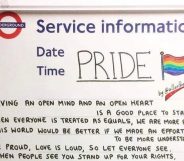 UNDERGROUND
Service information
Date
Time PRIDE
VING AN OPEN MIND AND AN OPEN HEART
IS A GOOD PLACE TO STA
HEN EVERYONE IS TREATED AS EQUALS, WE ARE MORE
THIS WORLD WOULD BE BETTER IF WE MADE AN EFFORT
TO BE MORE UNDERS
E PROUD, LOVE IS LOUD, SO LET EVERYONE SEE,
HEN PEOPLE SEE YOU STAND UP FOR YOUR RIGHTS,